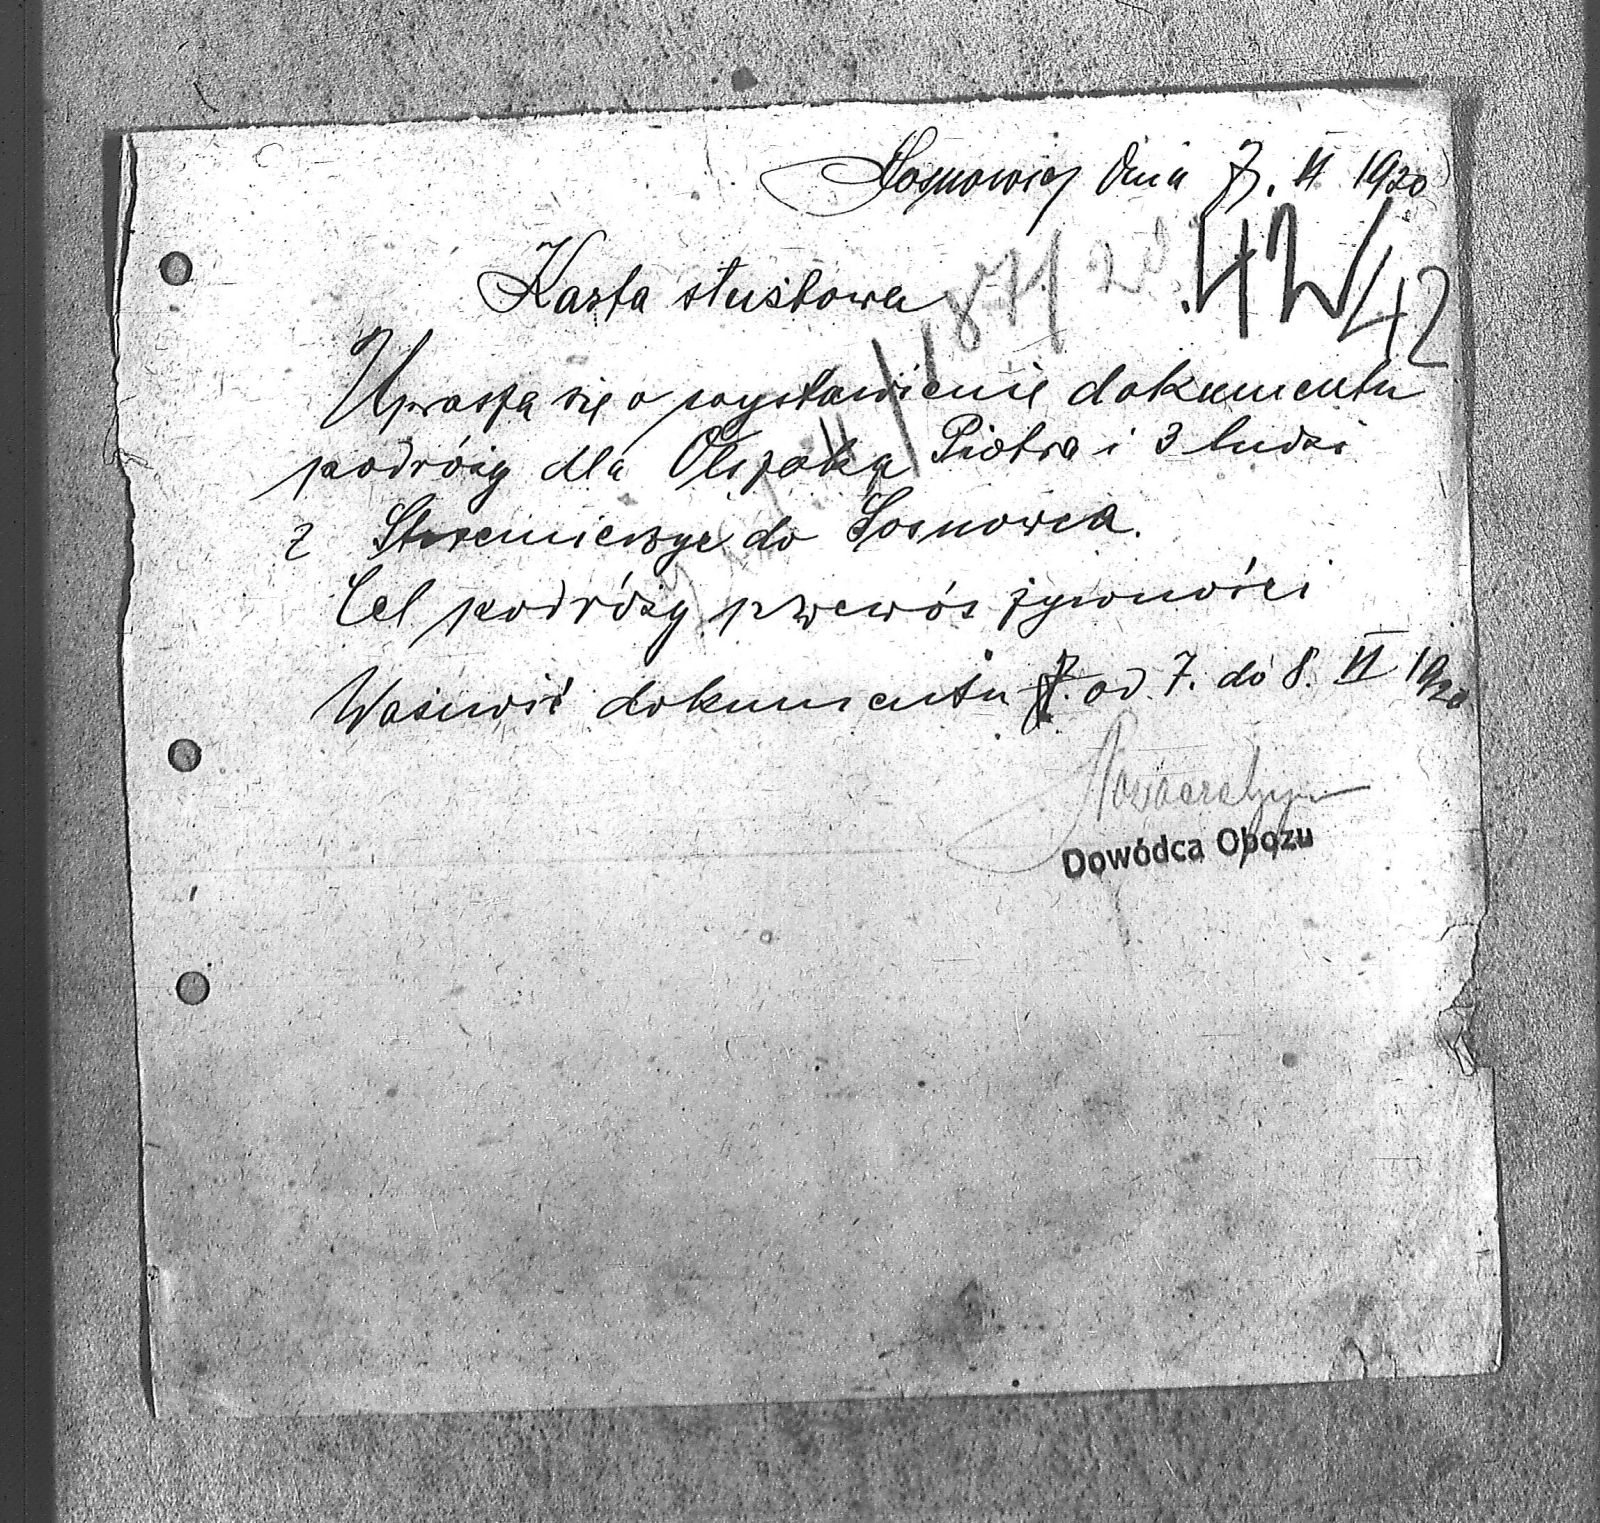 Sosnowicz dnia 7. II 1920
42/42
Karta służbowa
Uprasza się o wystawienie dokumentu
podróży dla Olszaka Piotra i 3 ludzi
z Strzemieszyc do Sosnowca.
Cel podróży przewóz żywności
Ważność dokumentu od 7. do 8. II 1920
Dowódca Obozu